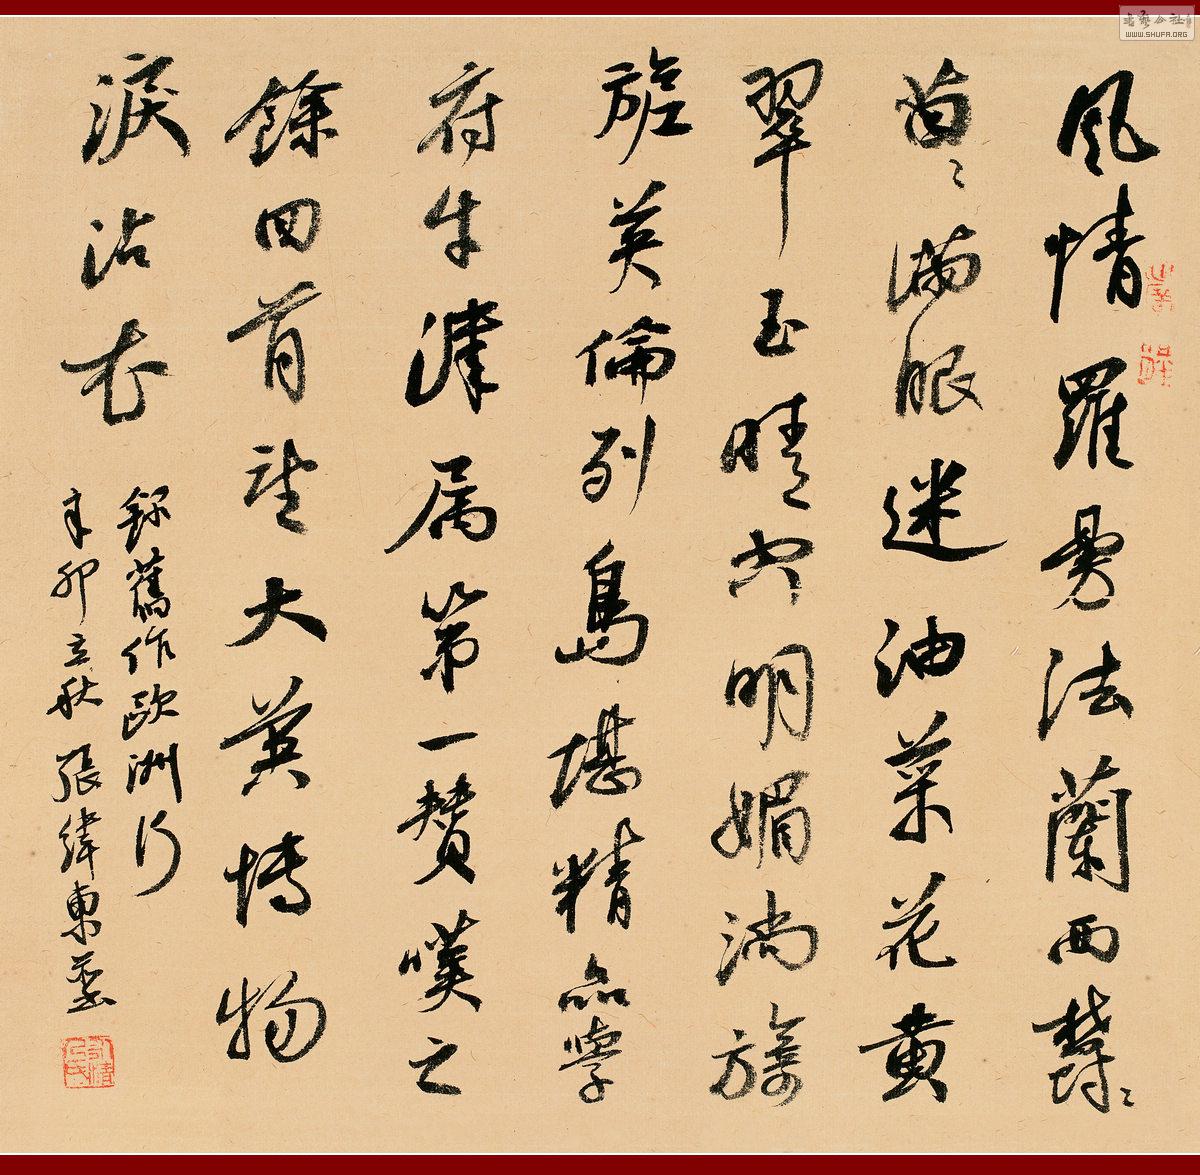 書藝公社
WWW.SHUFA.ORG
風情羅曼法蘭西鬱〻
茵〻滿眼迷油菜花黃
翠玉晴空明媚淌旖
旎英倫列島堪精品學
府牛津属第一贊嘆之
餘回首望大英博物
淚沾衣
錄舊作歐洲行
辛卯立秋張緯東並